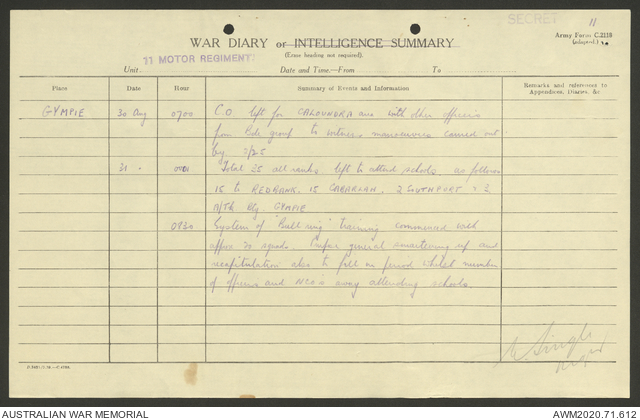 SECRET
11
Army Form C.2118
(adapted.)
WAR DIARY or INTELLIGENCE SUMMARY
(Erase heading not required).
11 MOTOR REGIMENT
Unit
Date and Time.—From
To
Place
Date
Hour
Summary of Events and Information
Remarks and references to
Appendices, Diaries, &c
GYMPIE
30 Aug
0700
C.O. left for CALOUNDRA area with other officers
from Bde group to witness manoeuvres carried out
by 2/25
31 "
0001
Total 35 all ranks left to attend schools as follows
15 to REDBANK, 15 CABARLAH, 2 SOUTHPORT, 3
GYMPIE
0930
System of "Bull ring" training commenced with
approx 30 squads. general smartening up and
recapitulation also to fill in period whilst number
of officers and NCO's away attending schools.
AUSTRALIAN WAR MEMORIAL
AWM2020.71.612